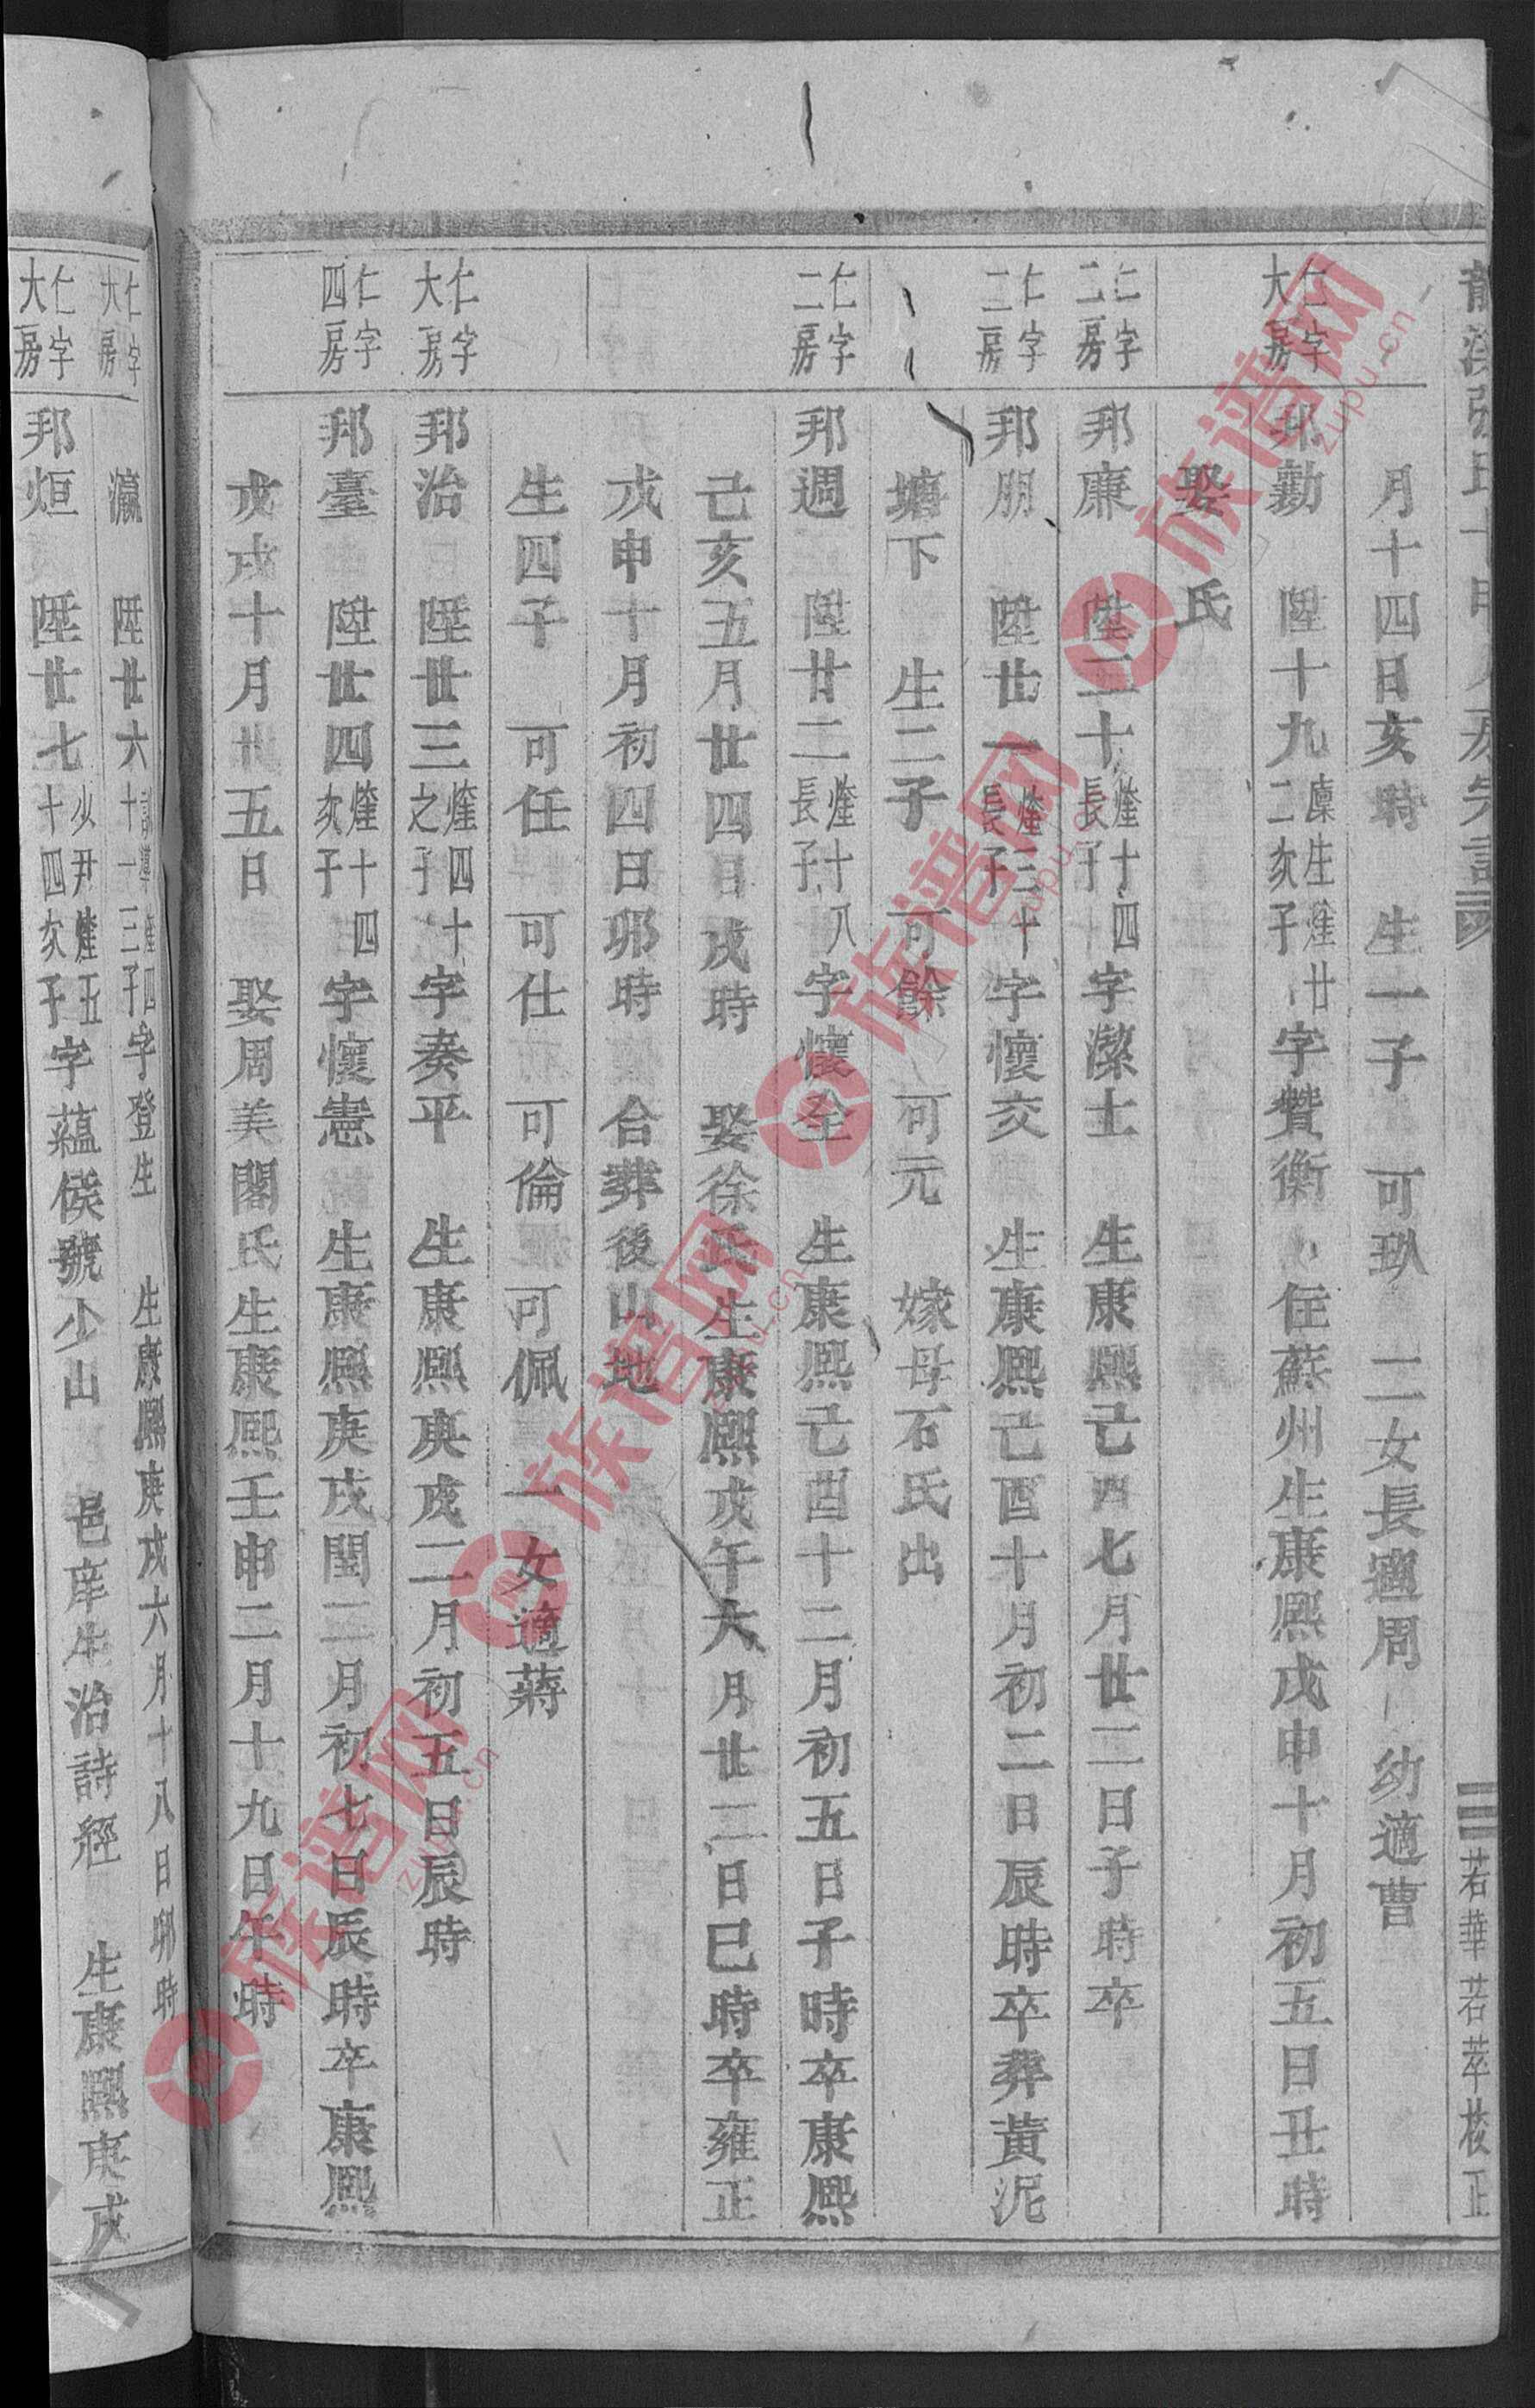 月十四日亥時　生一子　可玖　二女長適周　幼適曹
仁字大房　邦勷　陞十九　廩生　廿二次子　字贊衡　住蘇州生康熙戊申十月初五日丑時
娶　氏
仁字二房　邦廉　陞二十　煃十四長子　字潔士　生康熙己酉七月廿二日子時卒
仁字二房　邦朋　陞廿一　煃三十長子　字懷交　生康熙己酉十月初二日辰時卒葬黃泥
塘下　生二子　可餘　可元　嫁母石氏出
仁字二房　邦週　陞廿二　煃十八長子　字懷全　生康熙己酉十二月初五日子時卒康熙
己亥五月廿四日戌時　娶徐氏生康熙戊午六月廿二日巳時卒雍正
戊申十月初四日卯時　合葬後山地
生四子　可任　可仕　可倫　可佩　一女適蔣
仁字大房　邦治　陞廿三　煃四十之子　字奏平　生康熙庚戌二月初五日辰時
仁字四房　邦臺　陞廿四　煃十四次子　字懷憲　生康熙庚戌閏二月初七日辰時卒康熙
戊戌十月廿五日　娶周美閣氏生康熙壬申二月十九日午時
仁字大房　瀛　陞廿六　字登生　生康熙庚戌六月十八日卯時
仁字大房　邦烜　陞廿七　少尹煃五十四次子　字蘊侯號少山　邑庠生治詩經　生康熙庚戌
若華若萃校正
族谱网
zupu.cn
族谱网
zupu.cn
族谱网
zupu.cn
族谱网
zupu.cn